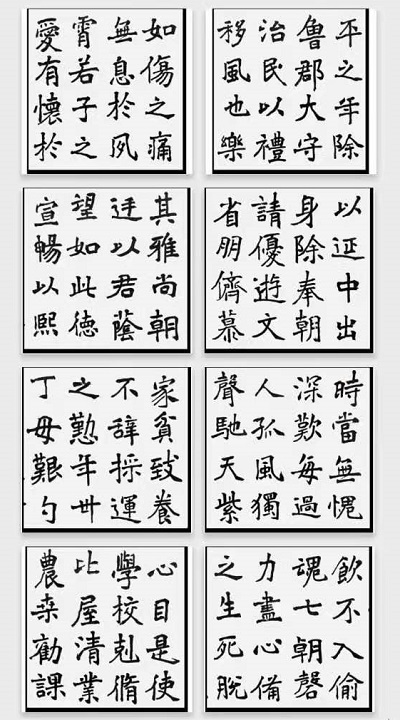 平之年除
魯郡大守
治民以禮
移風也樂
如傷之痛
無息於夙
霄若子之
愛有懷於
以延中出
身除奉朝
請優遊文
省朋儕慕
其雅尚朝
廷以君蔭
望如此德
宣暢以熙
時當無愧
深歎每過
人孤風獨
聲馳天紫
家貧致養
不辭採運
之懃年廿
丁母艱勺
飲不入偷
魂七朝磬
力盡心備
之生死脫
心目是使
學校剋脩
比屋清業
農桑勸課